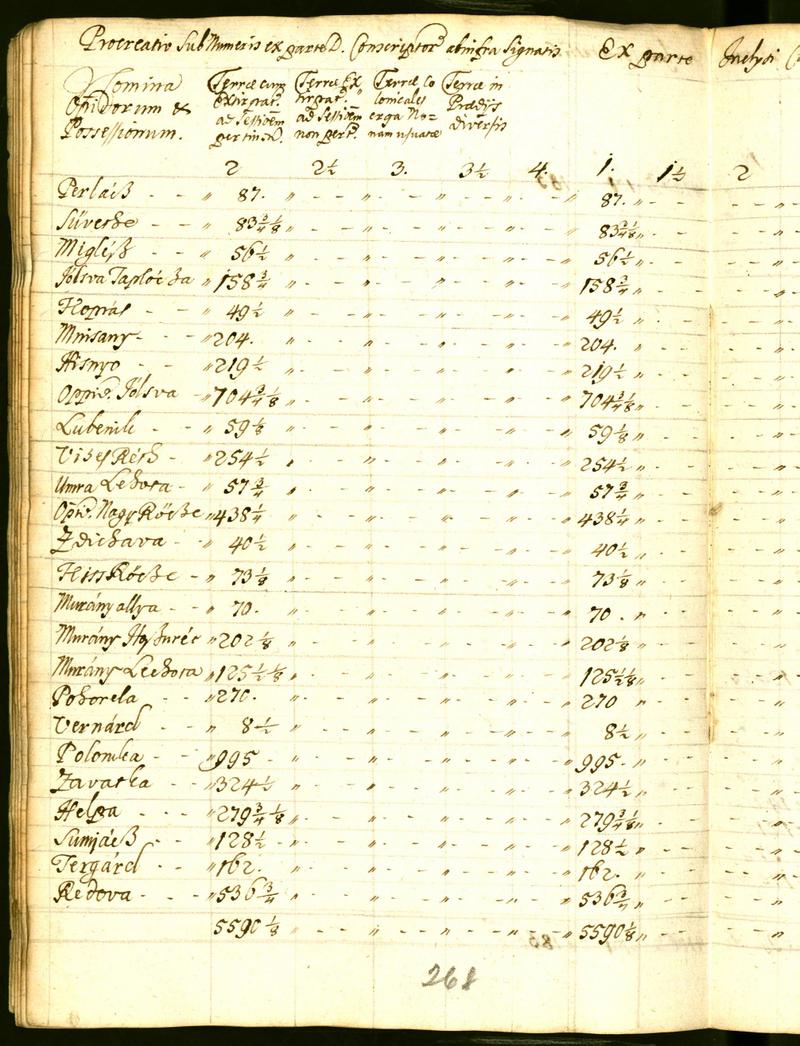 Procreatio Sub Numeris ex parte D. Conscriptor abinfra Signatis Ex parte Inclyti
Nomina Oppidorum & Possessionum.
Terræ cum Exstirpat. ad Sessionem pertinen.
Terræ Ex stirpat. ad Sessionem non pert.
Terræ Co lonicales erga No= nam usuatæ
Terræ in Prædijs diversis
2 2½ 3. 3½ 4. 1. 1½ 2
Perlász - - " 87. " - - " - - " - - " - - " 87. "
Süvethe - - " 83¾⅛ " - - " - - " - - " - - " 83¾⅛ "
Migléß - - " 56½ " - - " - - " - - " - - " 56½ "
Jólsva Taplócza " 158¾ " - - " - - " - - " - - " 158¾ "
Kopráš - - " 49½ " - - " - - " - - " - - " 49½ "
Mnisany - - " 204. " - - " - - " - - " - - " 204. "
Hisnyo - - " 219½ " - - " - - " - - " - - " 219½ "
Oppid. Jólsva - " 704¾⅛ " - - " - - " - - " - - " 704¾⅛ "
Lubenik - - " 59⅛ " - - " - - " - - " - - " 59⅛ "
Vizes Réth - - " 254½ " - - " - - " - - " - - " 254½ "
Umra Lehota - " 57¾ " - - " - - " - - " - - " 57¾ "
Opid. Nagy Rőcze " 438¼ " - - " - - " - - " - - " 438¼ "
Zdichava - - " 40½ " - - " - - " - - " - - " 40½ "
Kiss Rőcze - " 73⅛ " - - " - - " - - " - - " 73⅛ "
Murányallya - - " 70. " - - " - - " - - " - - " 70. "
Murány Hoszuréт " 202⅛ " - - " - - " - - " - - " 202⅛ "
Murány Lechota " 125½⅛ " - - " - - " - - " - - " 125½⅛ "
Pohorela - - " 270. " - - " - - " - - " - - " 270 "
Vernárd - - " 8½ " - - " - - " - - " - - " 8½ "
Polomka - - " 995 - " - - " - - " - - " - - " 995. "
Zavatka - - " 324½ " - - " - - " - - " - - " 324½ "
Helpa - - " 279¾⅛ " - - " - - " - - " - - " 279¾⅛ "
Sumjácz - - " 128½ " - - " - - " - - " - - " 128½ "
Tergárd - - " 162. " - - " - - " - - " - - " 162. "
Redova - - " 536¾ " - - " - - " - - " - - " 536¾ "
5590⅛ " - - " - - " - - " - - " 5590⅛ "
268